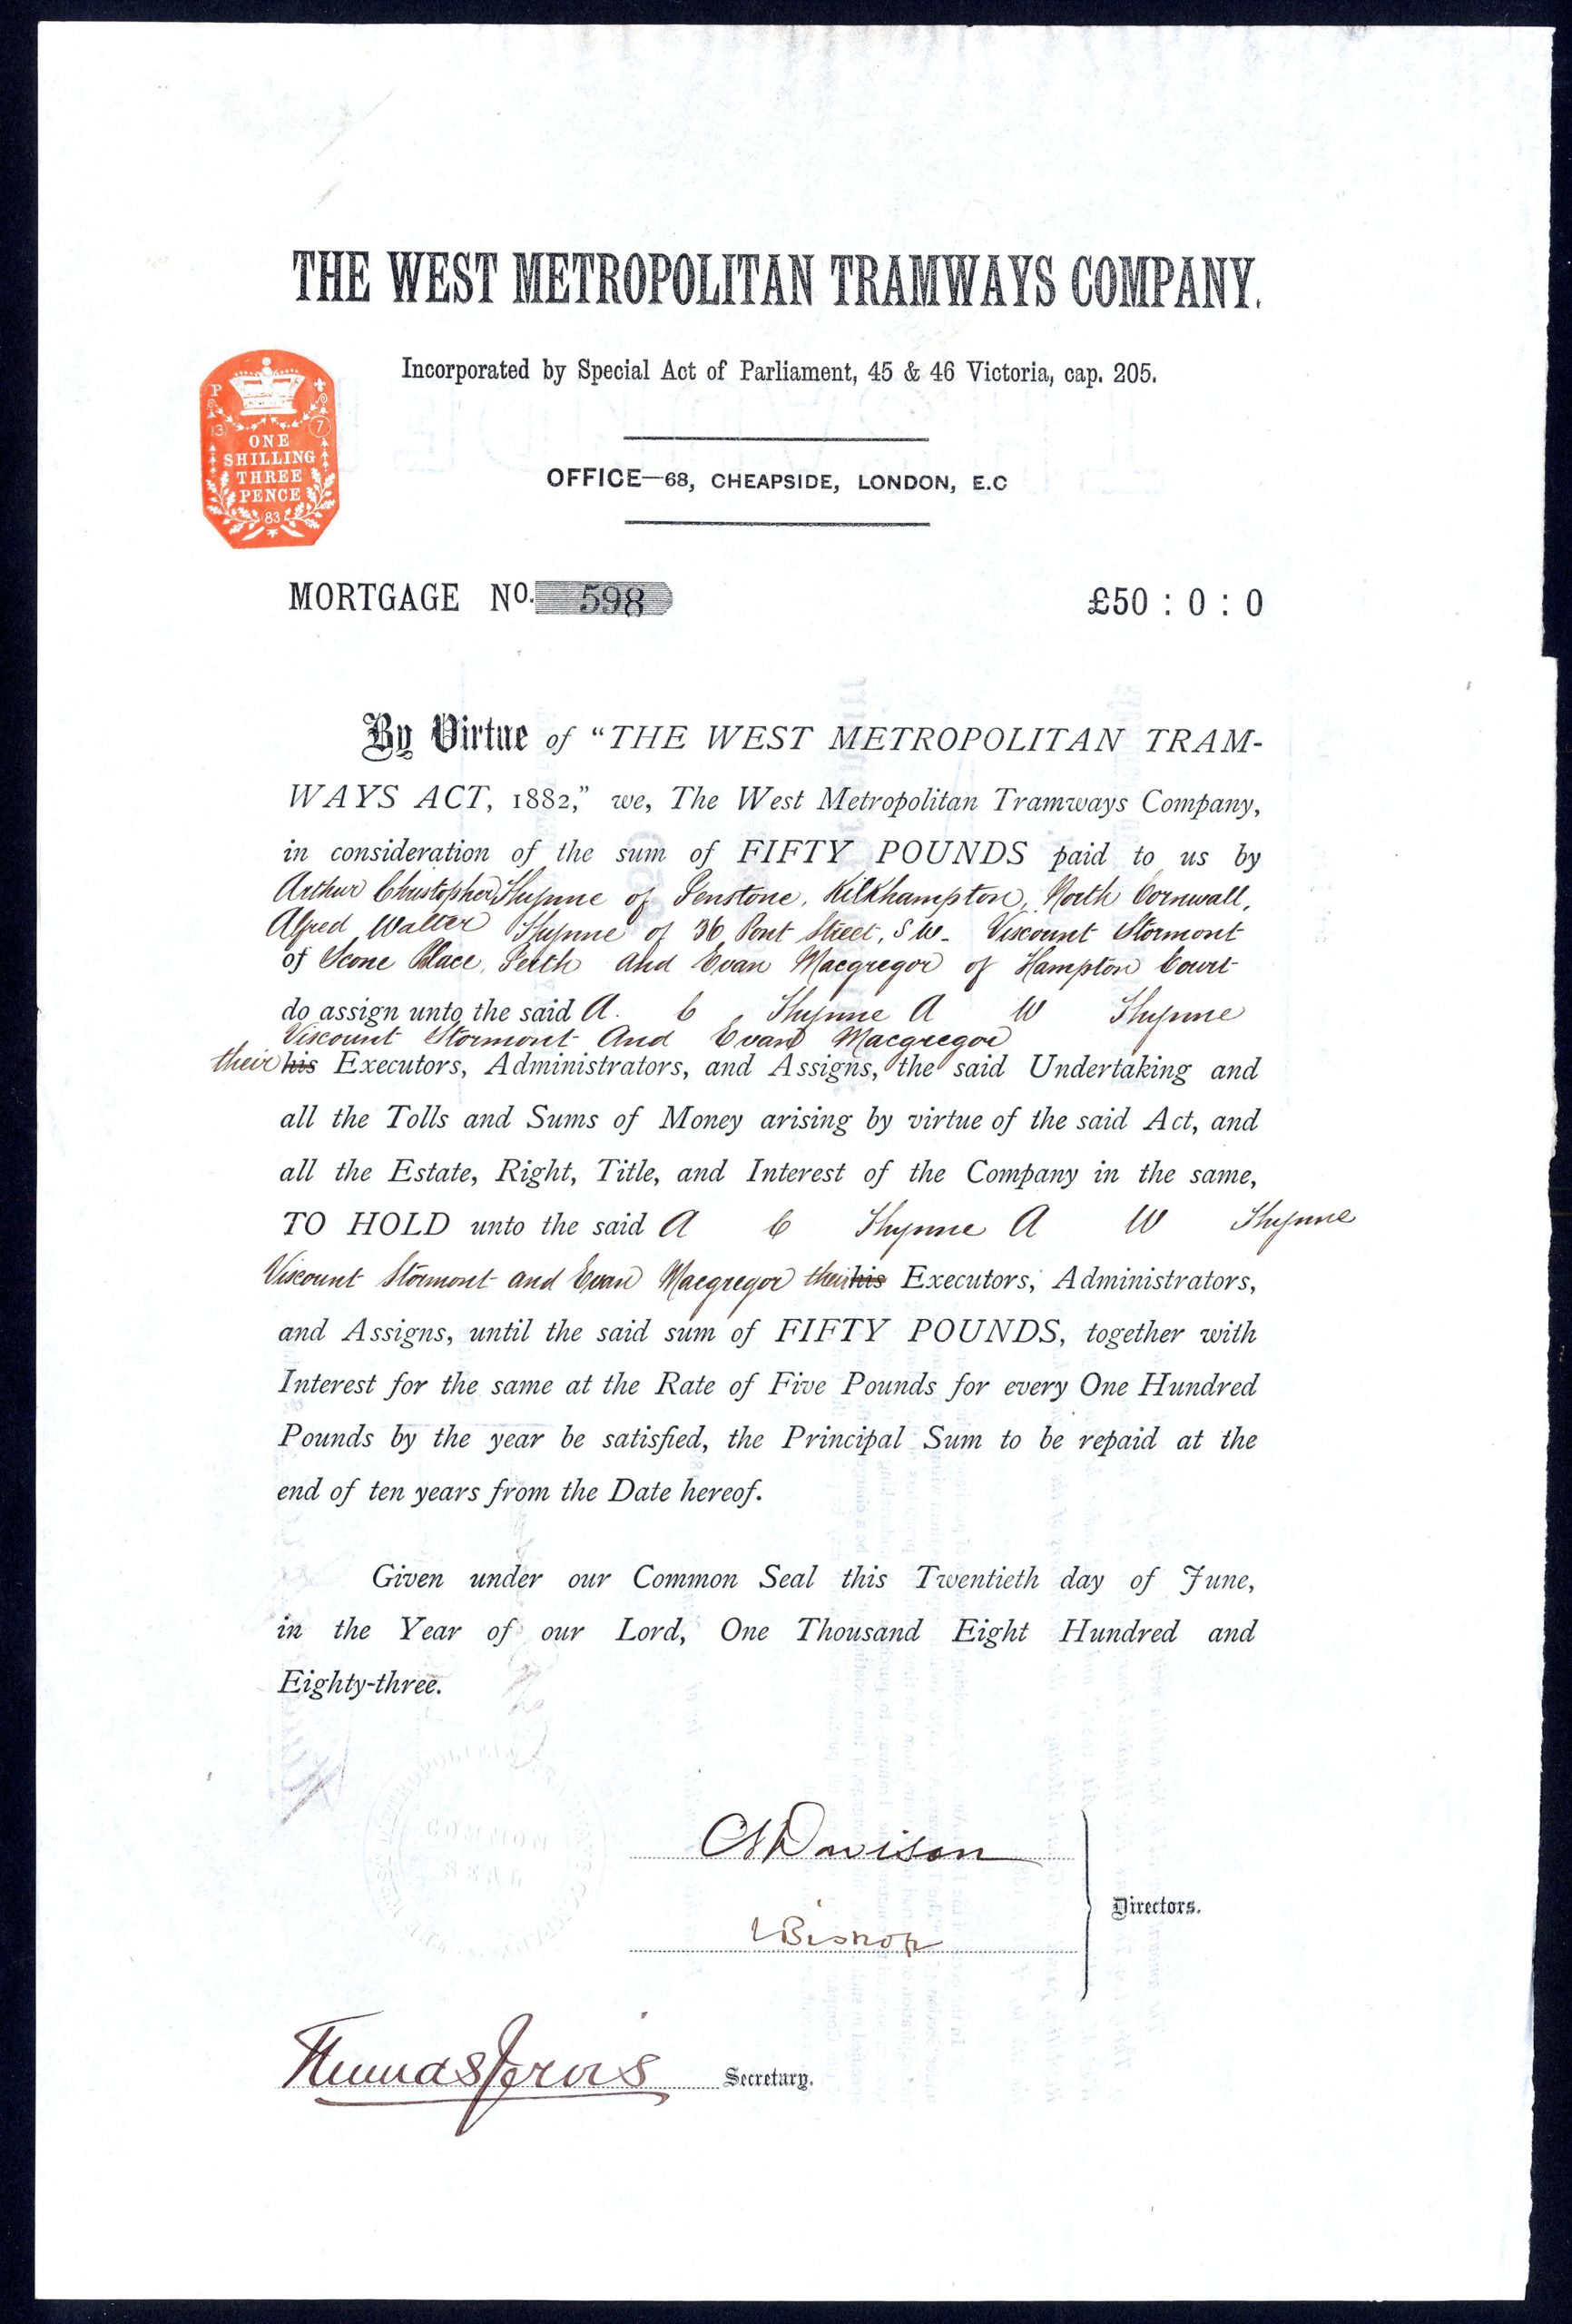 THE WEST METROPOLITAN TRAMWAYS COMPANY.
Incorporated by Special Act of Parliament, 45 & 46 Victoria, cap. 205.
P
13
7
ONE
SHILLING
THREE
PENCE
83
OFFICE—68, CHEAPSIDE, LONDON, E.C
MORTGAGE NO. 598 £50 : 0 : 0
By Virtue of "THE WEST METROPOLITAN TRAM-
WAYS ACT, 1882," we, The West Metropolitan Tramways Company,
in consideration of the sum of FIFTY POUNDS paid to us by
Arthur Christopher Thynne of Penstone, Kilkhampton, North Cornwall,
Alfred Walter Thynne of 36 Pont Street, S W. Viscount Stormont
of Scone Place, Perth and Evan Macgregor of Hampton Court
do assign unto the said A. C Thynne A W Thynne
Viscount Stormont And Evan Macgregor
their his Executors, Administrators, and Assigns, the said Undertaking and
all the Tolls and Sums of Money arising by virtue of the said Act, and
all the Estate, Right, Title, and Interest of the Company in the same,
TO HOLD unto the said A C Thynne A W Thynne
Viscount Stormont and Evan Macgregor their his Executors, Administrators,
and Assigns, until the said sum of FIFTY POUNDS, together with
Interest for the same at the Rate of Five Pounds for every One Hundred
Pounds by the year be satisfied, the Principal Sum to be repaid at the
end of ten years from the Date hereof.
Given under our Common Seal this Twentieth day of June,
in the Year of our Lord, One Thousand Eight Hundred and
Eighty-three.
COMMON
SEAL
Davison
Bishop
Directors.
Thomas Jervis Secretary.